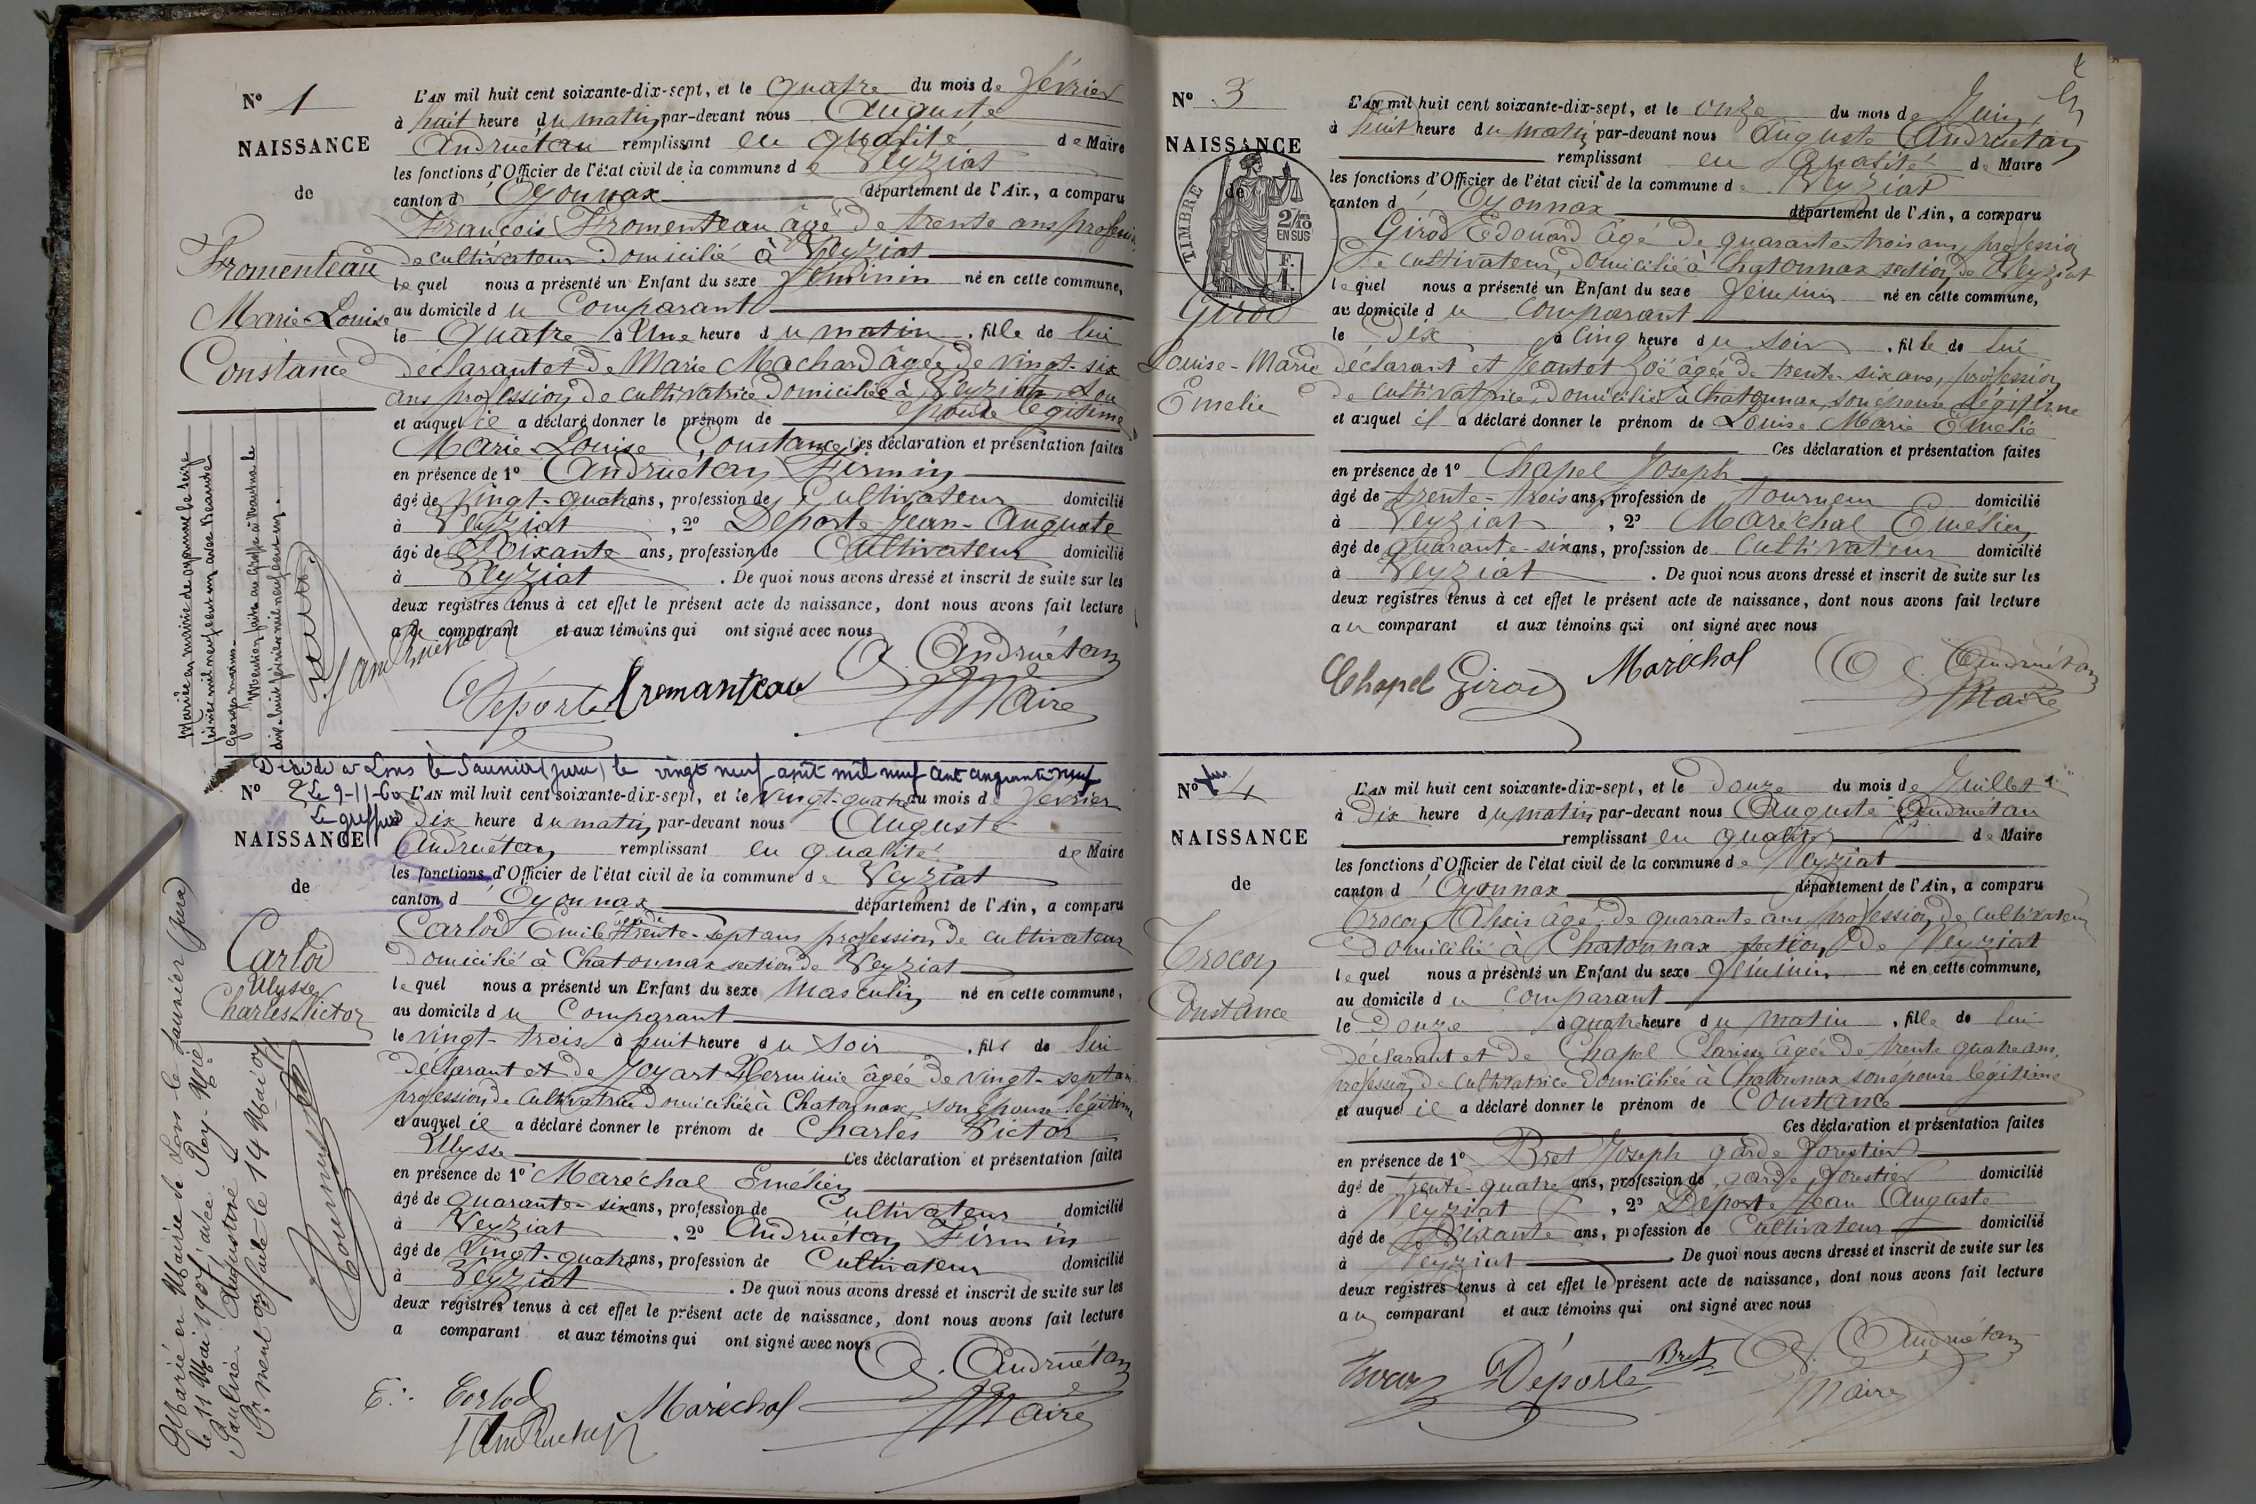 N° 1
NAISSANCE
de
Fromenteau
Marie-Louise
Constance
L'AN mil huit cent soixante-dix-sept, et le quatre du mois de février
à huit heure du matin par-devant nous Auguste
Andruétan remplissant en qualité de Maire
les fonctions d'Officier de l'état civil de la commune de Veyziat
canton d'Oyonnax département de l'Ain, a comparu
François Fromenteau âgé de trente ans profession
de cultivateur domicilié à Veyziat
lequel nous a présenté un Enfant du sexe féminin né en cette commune,
au domicile du Comparant
le quatre à Une heure du matin, fille de lui
déclarant et de Marie Machard âgée de vingt-six
ans profession de cultivatrice domiciliée à Veyziat, son
épouse légitime
et auquel il a déclaré donner le prénom de
Marie Louise Constance. Ces déclaration et présentation faites
en présence de 1° Andruétan Firmin
âgé de vingt-quatre ans, profession de Cultivateur domicilié
à Veyziat, 2° Déporte Jean-Auguste
âgé de Soixante ans, profession de Cultivateur domicilié
à Veyziat. De quoi nous avons dressé et inscrit de suite sur les
deux registres tenus à cet effet le présent acte de naissance, dont nous avons fait lecture
au comparant et aux témoins qui ont signé avec nous
A. Andruétan
Déporte Fromanteau Maire
Mariée en mairie de oyonnax le seize
février mil neuf cent un avec
Mention faite au Greffe à Nantua le
dix-huit février mil neuf cent un.
Décédé à Lons le Saunier (jura) le vingt neuf août mil neuf cent cinquante neuf
Le 9-11-60
Le greffier
N° 2
NAISSANCE
de
Carlod
Ulysse
Charles Victor
L'AN mil huit cent soixante-dix-sept, et le vingt-quatre du mois de février
dix heure du matin par-devant nous Auguste
Andruétan remplissant en qualité de Maire
les fonctions d'Officier de l'état civil de la commune de Veyziat
canton d'Oyonnax département de l'Ain, a comparu
Carlod Emile âgé de trente-sept ans profession de cultivateur
domicilié à Chatonnax section de Veyziat
lequel nous a présenté un Enfant du sexe masculin né en cette commune,
au domicile du Comparant
le vingt-trois à huit heure du soir, fils de lui
déclarant et de Joyart Herminie âgée de vingt-sept ans
profession de Cultivatrice domiciliée à Chatonnax, son épouse légitime
et auquel il a déclaré donner le prénom de Charles Victor
Ulysse Ces déclaration et présentation faites
en présence de 1° Maréchal Emélien
âgé de quarante-six ans, profession de Cultivateur domicilié
à Veyziat, 2° Andruétan Firmin
âgé de Vingt-quatre ans, profession de Cultivateur domicilié
à Veyziat. De quoi nous avons dressé et inscrit de suite sur les
deux registres tenus à cet effet le présent acte de naissance, dont nous avons fait lecture
a comparant et aux témoins qui ont signé avec nous
A. Andruétan
E. Carlod Maréchal Maire
Marié en Mairie de Lons-le-Saunier (Jura)
le 11 Mai 1907 avec Rey-Mié
Pauline Augustine
Pr ment on faite le 14 Mai 07
N° 3
NAISSANCE
de
TIMBRE
2/10 EN SUS
F. 1.
Girod
Louise-Marie
Emelie
L'AN mil huit cent soixante-dix-sept, et le onze du mois de Juin
à huit heure du matin par-devant nous Auguste Andruétan
remplissant en qualité de Maire
les fonctions d'Officier de l'état civil de la commune de Veyziat
canton d'Oyonnax département de l'Ain, a comparu
Girod Edouard âgé de quarante-trois ans, profession
de cultivateur, domicilié à Chatonnax section de Veyziat
lequel nous a présenté un Enfant du sexe féminin né en cette commune,
au domicile du comparant
le Dix à Cinq heure du soir, fille de lui
déclarant et Jeantet Zoé âgée de trente-six ans, profession
de cultivatrice, domiciliée à Chatonnax, son épouse légitime
et auquel il a déclaré donner le prénom de Louise Marie Emelie
Ces déclaration et présentation faites
en présence de 1° Chapel Joseph
âgé de trente-trois ans, profession de tourneur domicilié
à Veyziat, 2° Maréchal Emélien
âgé de quarante-six ans, profession de cultivateur domicilié
à Veyziat. De quoi nous avons dressé et inscrit de suite sur les
deux registres tenus à cet effet le présent acte de naissance, dont nous avons fait lecture
au comparant et aux témoins qui ont signé avec nous
Chapel Girod Maréchal A. Andruétan
Maire
N° 4
NAISSANCE
de
Crocon
Constance
L'AN mil huit cent soixante-dix-sept, et le Douze du mois de Juillet
à Dix heure du matin par-devant nous Auguste Andruétan
remplissant en qualité de Maire
les fonctions d'Officier de l'état civil de la commune de Veyziat
canton d'Oyonnax département de l'Ain, a comparu
Crocon Alexis âgé de quarante ans profession de cultivateur
domicilié à Chatonnax section de Veyziat
lequel nous a présenté un Enfant du sexe féminin né en cette commune,
au domicile du comparant
le Douze à quatre heure du matin, fille de lui
déclarant et de Chapel Clarisse âgée de trente quatre ans,
profession de cultivatrice domiciliée à Chatonnax son épouse légitime
et auquel il a déclaré donner le prénom de Constance
Ces déclaration et présentation faites
en présence de 1° Bret Joseph garde forestier
âgé de trente-quatre ans, profession de garde forestier domicilié
à Veyziat, 2° Déporte Jean Auguste
âgé de Soixante ans, profession de Cultivateur domicilié
à Veyziat De quoi nous avons dressé et inscrit de suite sur les
deux registres tenus à cet effet le présent acte de naissance, dont nous avons fait lecture
au comparant et aux témoins qui ont signé avec nous
A. Andruétan
Déporte Bret Maire